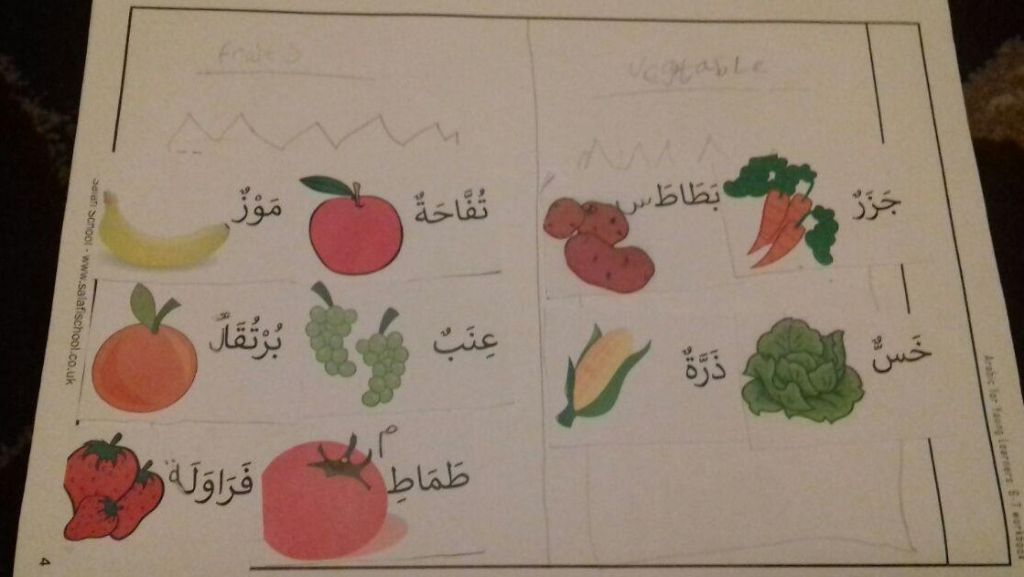 Fruits
Vegetable
تُفَّاحَةٌ
مَوْزٌ
عِنَبٌ
بُرْتُقَالٌ
طَمَاطِم
فَرَاوَلَة
جَزَرٌ
بَطَاطَس
خَسٌّ
ذَرَّةٌ
Salafi School - www.salafischool.co.uk
Arabic for Young Learners 6.7 workbook
4